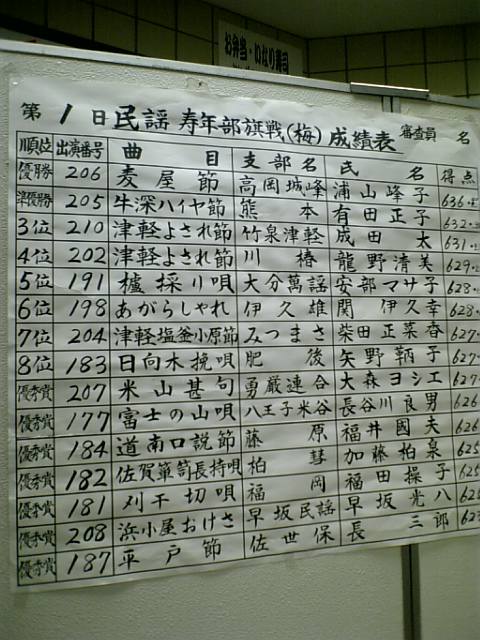 お弁当・いなり寿司
第1日民謡寿年部旗戦(梅)成績表 審査員 名
順位 出演番号 曲目 支部名 氏名 得点
優勝 206 麦屋節 高岡城峰 浦山峰子 636
準優勝 205 牛深ハイヤ節 熊本 有田正子 632
3位 210 津軽よされ節 竹泉津軽 成田太 631
4位 202 津軽よされ節 川椿 龍野清美 629
5位 191 櫨採り唄 大分萬謡 安部マサ子 628
6位 198 あがらしゃれ 伊久雄 関伊久幸 628
7位 204 津軽塩釜小原節 みつまさ 柴田正菜 627
8位 183 日向木挽唄 肥後 矢野鞆子 627
優秀賞 207 米山甚句 勇厳連合 大森ヨシエ 627
優秀賞 177 富士の山唄 八王子米谷 長谷川良男 626
優秀賞 184 道南口説節 藤原 福井國夫 626
優秀賞 182 佐賀箪笥長持唄 柏彗 加藤柏泉 625
優秀賞 181 刈干切唄 福岡 福田操子 625
優秀賞 208 浜小屋おけさ 早坂民謡 早坂光八 625
優秀賞 187 平戸節 佐世保 長三郎 623